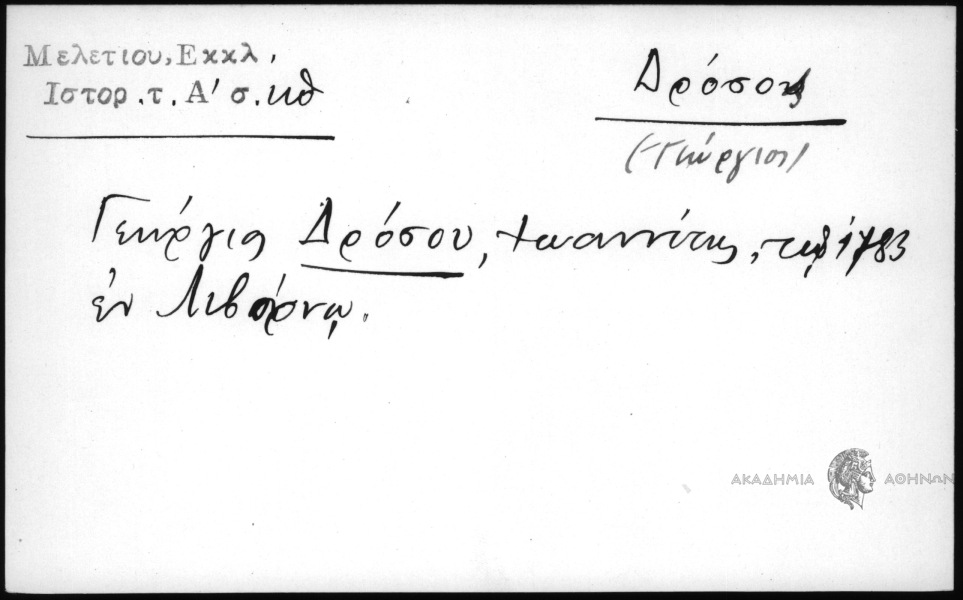 Μελετιου, Εκκλ.
Ιστορ. τ. Α' σ. κθ
Δρόσος
(Γεώργιος)
Γεώργιος Δρόσου, Ιωαννίτης, τῷ 1783
ἐν Λιβόρνῳ.
ΑΚΑΔΗΜΙΑ ΑΘΗΝΩΝ